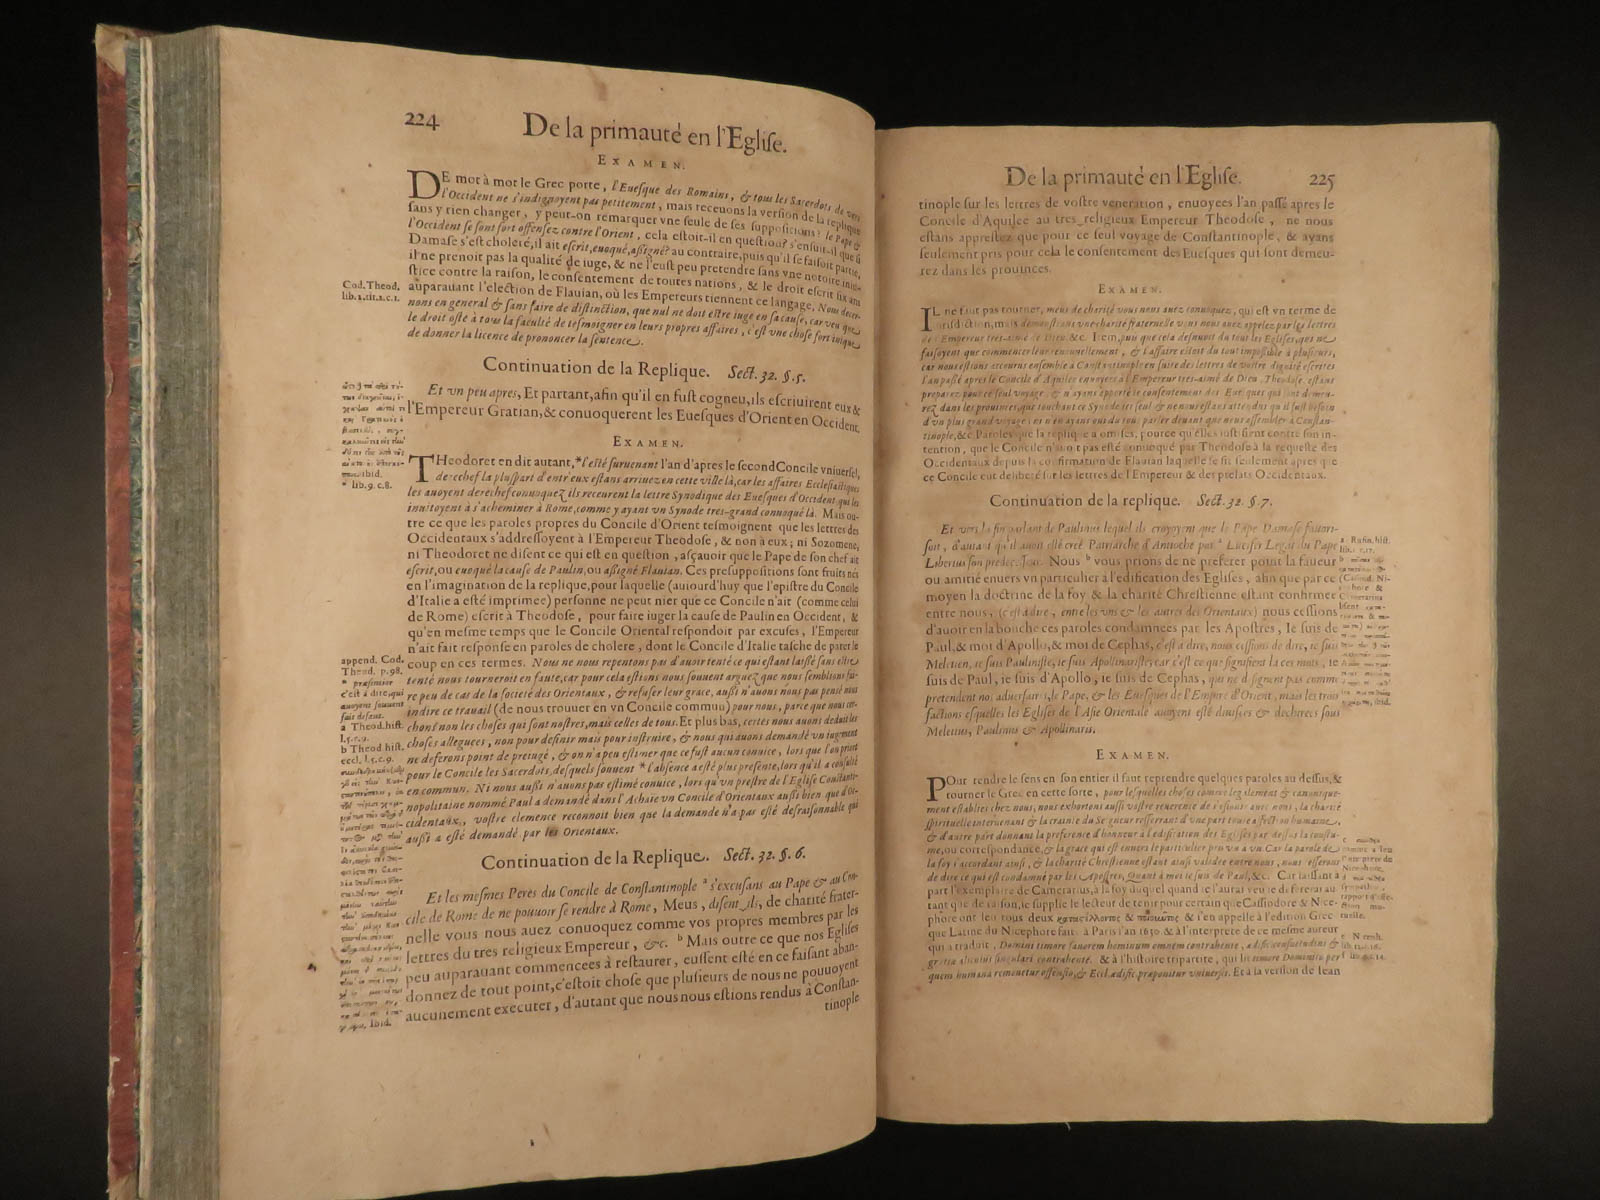 224
De la primauté en l'Egliſe.
EXAMEN.
DE mot à mot le Grec porte, l'Eueſque des Romains, & tous les Sacerdots de vers
l'Occident ne s'indignoyent pas petitement, mais receuons la verſion de la replique
ſans y rien changer, y peut-on remarquer vne ſeule de ſes ſuppoſitions? le Pape &
l'Occident ſe ſont fort offenſez contre l'Orient, cela eſtoit-il en queſtion? s'enſuit-il que ſi
Damaſe s'eſt choleré, il ait eſcrit, euoqué, aſſigné? au contraire, puis qu'il ſe faiſoit partie,
il ne prenoit pas la qualité de iuge, & ne l'euſt peu pretendre ſans vne notoire iniu-
ſtice contre la raiſon, le conſentement de toutes nations, & le droit eſcrit ſix ans
auparauant l'election de Flauian, où les Empereurs tiennent ce langage, Nous decer-
nons en general & ſans faire de diſtinction, que nul ne doit eſtre iuge en ſa cauſe, car veu que
le droit oſte à tous la faculté de teſmoigner en leurs propres affaires, c'eſt vne choſe fort inique
de donner la licence de prononcer la ſentence.
Cod. Theod.
lib. 2. tit. 2. c. 1.
Continuation de la Replique. Sect. 32. §. 5.
Et vn peu apres, Et partant, afin qu'il en fuſt cogneu, ils eſcriuirent eux &
l'Empereur Gratian, & conuoquerent les Eueſques d'Orient en Occident.
EXAMEN.
ibid.
* lib. 9. c. 8.
THeodoret en dit autant, * l'eſté ſuruenant l'an d'apres le ſecond Concile vniuerſel,
derechef la pluſpart d'entr eux eſtans arriuez en cette ville là, car les affaires Eccleſiaſtiques
les auoyent derechef conuoquez, ils receurent la lettre Synodique des Eueſques d'Occident qui les
inuitoyent à s'acheminer à Rome, comme y ayant vn Synode tres-grand conuoqué là. Mais ou-
tre ce que les paroles propres du Concile d'Orient teſmoignent que les lettres des
Occidentaux s'addreſſoyent à l'Empereur Theodoſe, & non à eux; ni Sozomene,
ni Theodoret ne diſent ce qui eſt en queſtion, aſçauoir que le Pape de ſon chef ait
eſcrit, ou euoqué la cauſe de Paulin, ou aſſigné Flauian. Ces preſuppoſitions ſont fruits nés
en l'imagination de la replique, pour laquelle (aujourd'huy que l'epiſtre du Concile
d'Italie a eſté imprimee) perſonne ne peut nier que ce Concile n'ait (comme celui
de Rome) eſcrit à Theodoſe, pour faire iuger la cauſe de Paulin en Occident, &
qu'en meſme temps que le Concile Oriental reſpondoit par excuſes, l'Empereur
n'ait fait reſponſe en paroles de cholere, dont le Concile d'Italie taſche de parer le
coup en ces termes. Nous ne nous repentons pas d'auoir tenté ce qui eſtant laiſſé ſans eſtre
tenté nous tourneroit en faute, car pour cela eſtions nous ſouuent arguez que nous ſemblions fai-
re peu de cas de la ſocieté des Orientaux, & refuſer leur grace, auſſi n'auons nous pas penſé nous
indire ce trauail (de nous trouuer en vn Concile commun) pour nous, parce que nous cer-
chons non les choſes qui ſont noſtres, mais celles de tous. Et plus bas, certes nous auons deduit les
choſes alleguees, non pour definir mais pour inſtruire, & nous qui auons demandé vn iugement
ne deferons point de preiugé, & on n'a peu eſtimer que ce fuſt aucun conuice, lors que l'on prioit
pour le Concile les Sacerdots, deſquels ſouuent * l'abſence a eſté plus preſente, lors qu'il a conſulté
en commun. Ni nous auſſi n'auons pas eſtimé conuice, lors qu'vn preſtre de l'Egliſe Conſtanti-
nopolitaine nommé Paul a demandé dans l'Achaie vn Concile d'Orientaux auſſi bien que d'Oc-
cidentaux, voſtre clemence reconnoit bien que la demande n'a pas eſté deſraiſonnable qui
auſſi a eſté demandé par les Orientaux.
append. Cod.
Theod. p. 98.
* præſentior
c'eſt à dire, qui
auoyent ſouuent
fait defaut.
a Theod. hiſt.
l. 5. c. 9.
b Theod. hiſt.
eccl. l. 5. c. 9.
Ibid.
Continuation de la Replique. Sect. 32. §. 6.
Et les meſmes Peres du Concile de Conſtantinople a s'excuſans au Pape & au Con-
cile de Rome de ne pouuoir ſe rendre à Rome, Meus, diſent ils, de charité frater-
nelle vous nous auez conuoquez comme vos propres membres par les
lettres du tres religieux Empereur, &c. b Mais outre ce que nos Egliſes
peu auparauant commencées à reſtaurer, euſſent eſté en ce faiſant aban-
donnez de tout point, c'eſtoit choſe que pluſieurs de nous ne pouuoyent
aucunement executer, d'autant que nous nous eſtions rendus à Conſtan-
tinople
De la primauté en l'Egliſe.
225
tinople ſur les lettres de voſtre veneration, enuoyees l'an paſſé apres le
Concile d'Aquilee au tres religieux Empereur Theodoſe, ne nous
eſtans appreſtez que pour ce ſeul voyage de Conſtantinople, & ayans
ſeulement pris pour cela le conſentement des Eueſques qui ſont demeu-
rez dans les prouinces.
EXAMEN.
IL ne faut pas tourner, meus de charité vous nous auez conuoquez, qui eſt vn terme de
iuriſdiction, mais demonſtrans vne charité fraternelle vous nous auez appelez par les lettres
de l'Empereur tres-aimé de Dieu, &c. Item, puis que cela deſnuoit du tout les Egliſes, qui ne
faiſoyent que commencer leur renouuellement, & l'affaire eſtoit du tout impoſſible à pluſieurs,
car nous eſtions accourus enſemble à Conſtantinople en ſuite des lettres de voſtre dignité eſcrites
l'an paſſé apres le Concile d'Aquilee enuoyees à l'Empereur tres-aimé de Dieu Theodoſe, eſtans
preparez pour ce ſeul voyage & n'ayans apporté le conſentement des Eueſques qui ſont demeu-
rez dans les prouinces, que touchant ce Synode ici ſeul & ne nous eſtans attendus qu'il fuſt beſoin
d'vn plus grand voyage, ni n'en ayans ouï du tout parler deuant que nous aſſembler à Conſtan-
tinople, &c. Paroles que la replique a omiſes, pource qu'elles iuſtifient contre ſon in-
tention, que le Concile n'auoit pas eſté conuoqué par Theodoſe à la requeſte des
Occidentaux depuis la confirmation de Flauian laquelle ſe fit ſeulement apres que
ce Concile eut deliberé ſur les lettres de l'Empereur & des prelats Occidentaux.
Continuation de la replique. Sect. 32. §. 7.
Et vers la fin parlant de Paulinus lequel ils croyoyent que le Pape Damaſe fauori-
ſoit, d'autant qu'il auoit eſté creé Patriarche d'Antioche par a Lucifer Legat du Pape
Liberius ſon predeceſſeur. Nous b vous prions de ne preferer point la faueur
ou amitié enuers vn particulier à l'edification des Egliſes, afin que par ce
moyen la doctrine de la foy & la charité Chreſtienne eſtant confirmee
entre nous, (c'eſt à dire, entre les vns & les autres des Orientaux) nous ceſſions
d'auoir en la bouche ces paroles condamnées par les Apoſtres, Ie ſuis de
Paul, & moi d'Apollo, & moi de Cephas, c'eſt à dire, nous ceſſions de dire, ie ſuis
Meletien, ie ſuis Pauliniſte, ie ſuis Apollinariſte, car c'eſt ce que ſignifient ces mots, ie
ſuis de Paul, ie ſuis d'Apollo, ie ſuis de Cephas, qui ne deſignent pas comme
pretendent nos aduerſaires, le Pape, & les Eueſques de l'Empire d'Orient, mais les trois
factions eſquelles les Egliſes de l'Aſie Orientale auoyent eſté diuiſees & deſchirees ſous
Meletius, Paulinus & Apollinaris.
a Rufin. hiſt.
ibid.
EXAMEN.
POur rendre le ſens en ſon entier il faut reprendre quelques paroles au deſſus, &
tourner le Grec en cette ſorte, pour leſquelles choſes comme legalement & canonique-
ment eſtablies chez nous, nous exhortons auſſi voſtre reuerence de s'eſiouir auec nous, la charité
ſpirituelle interuenant & la crainte du Seigneur reſſerrant d'vne part toute affection humaine,
& d'autre part donnant la preference d'honneur à l'edification des Egliſes par deſſus la couſtu-
me, ou correſpondance, & la grace qui eſt enuers le particulier vn à vn. Car la parole de
la foy s'accordant ainſi, & la charité Chreſtienne eſtant ainſi validee entre nous, nous ceſſerons
de dire ce qui eſt condamné par les Apoſtres, Quant à moi ie ſuis de Paul, &c. Car laiſſant à
part l'exemplaire de Camerarius, à la foy duquel quand ie l'aurai veu ie defererai au-
tant que de raiſon, ie ſupplie le lecteur de tenir pour certain que Caſſiodore & Nice-
phore ont leu tous deux
& i'en appelle à l'edition Grec-
que Latine du Nicephore fait à Paris l'an 1630 & à l'interprete de ce meſme aureur
qui a traduit, Domini timore fauorem hominum omnem contrahente, ædificationi &
gratia alicuius ſingulari contrahente. & à l'hiſtoire tripartite, qui lit timore Domini, per
quem humana remouetur offenſio, & Eccl. ædific. præponitur vniuerſis. Et à la verſion de Iean